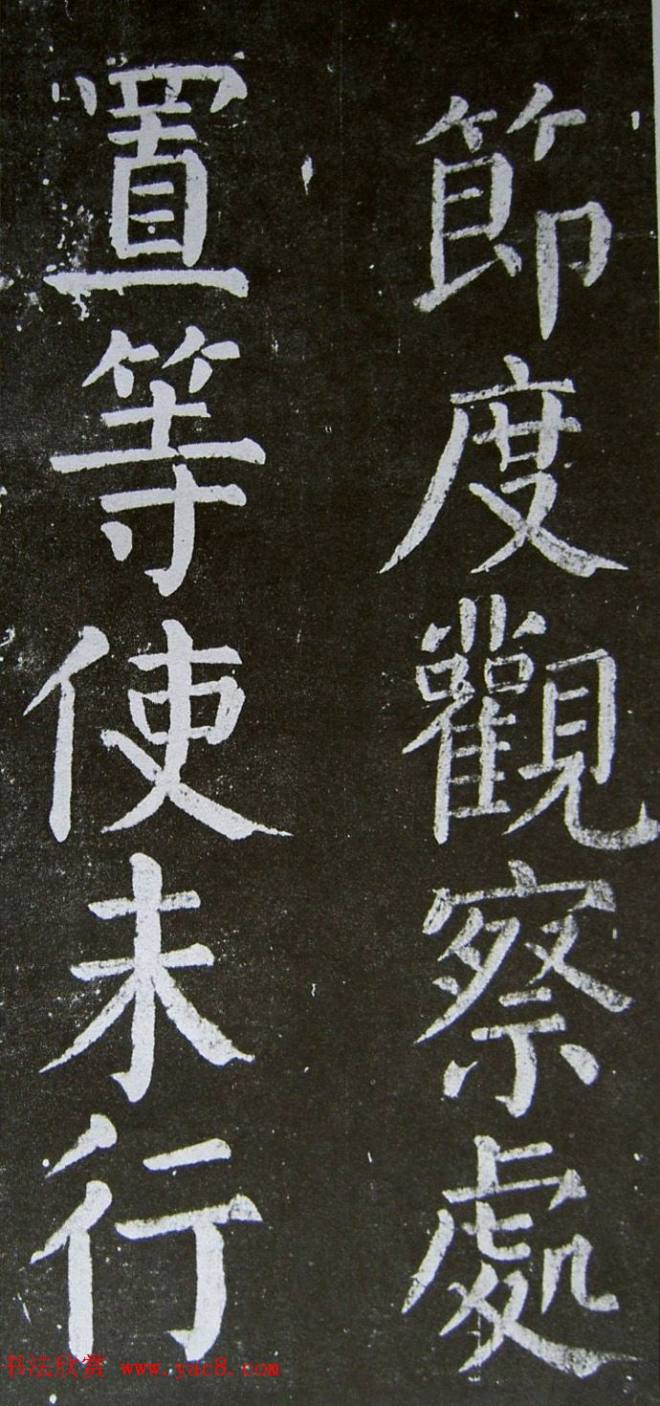 節度觀察處
置等使未行
书法欣赏 www.yac8.com